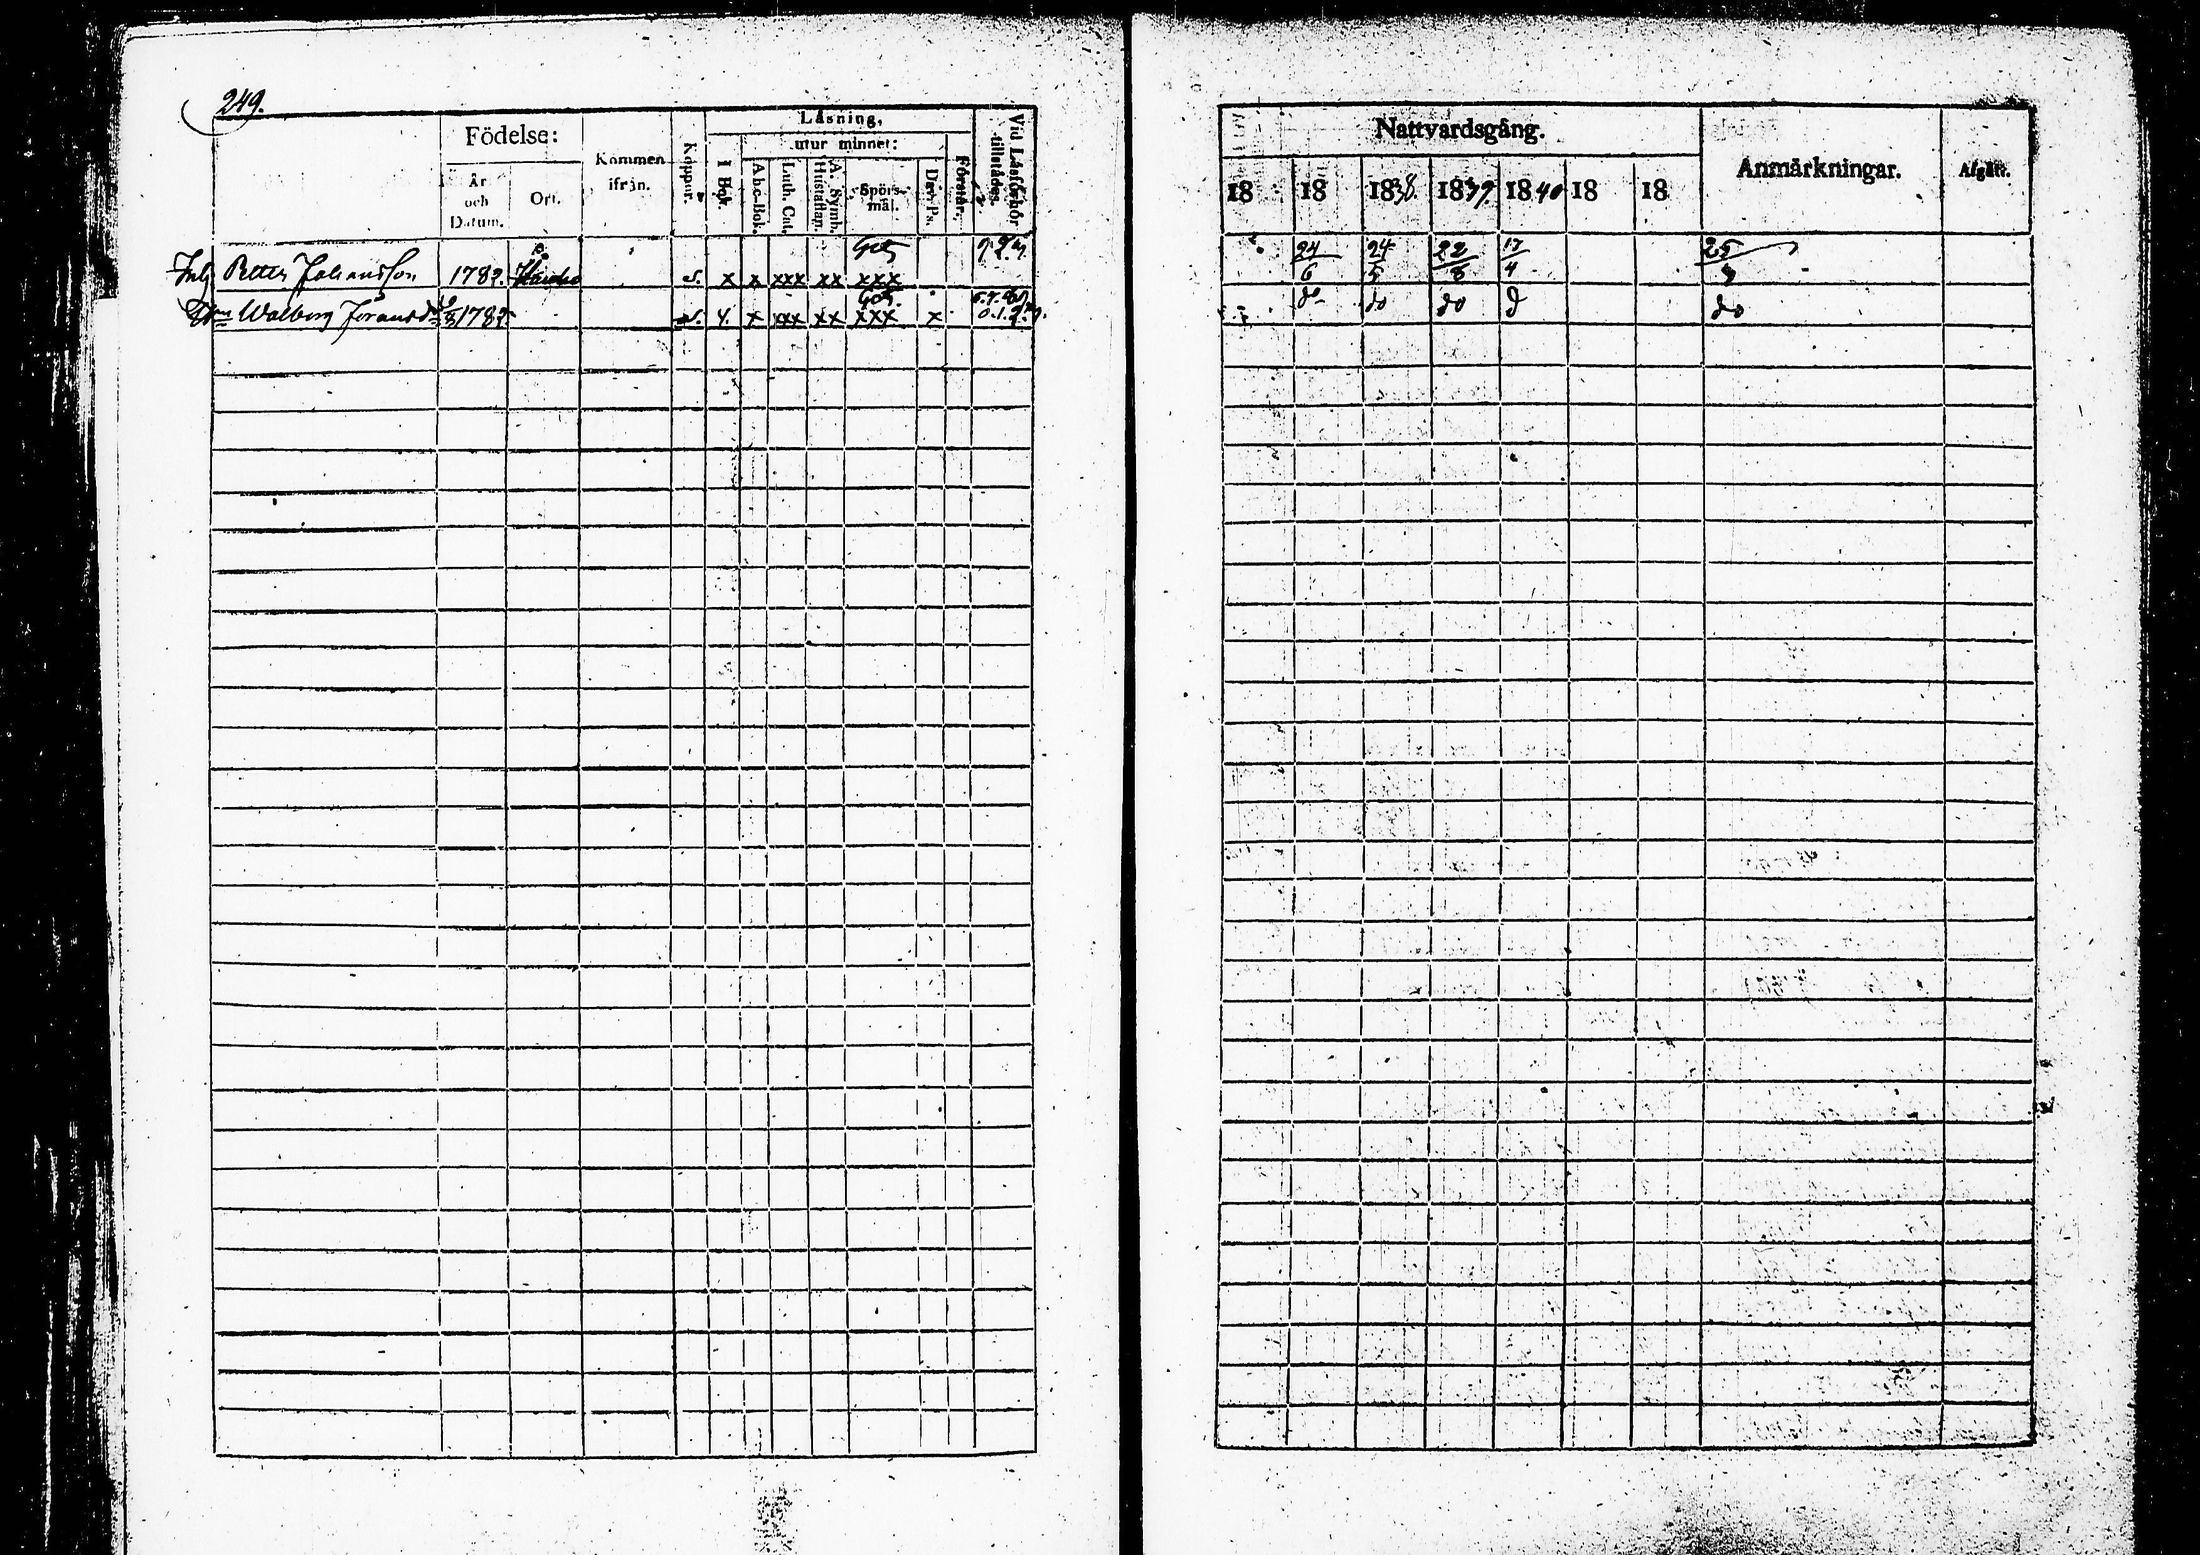 249.
Födelse:
År och Datum.
Ort.
Kommen ifrån.
Koppor.
Läsning,
I Bok.
utur minnet:
Abc-Bok.
Luth. Cat.
A. Symb. Hustaflan.
Spörsmål.
Dav. Ps.
Förstår.
Vid Läsförhör tillstädes.
Petter Johansson 1782. S. x x xxx xx xxx
Walborg Jöransd 178 S. 4. x xxx xx xxx x
Nattvardsgång.
18 18 1838. 1839. 1840 18 18
Anmärkningar.
Afgått.
24/6 24/5 22/8 17/4 25
do do do d do